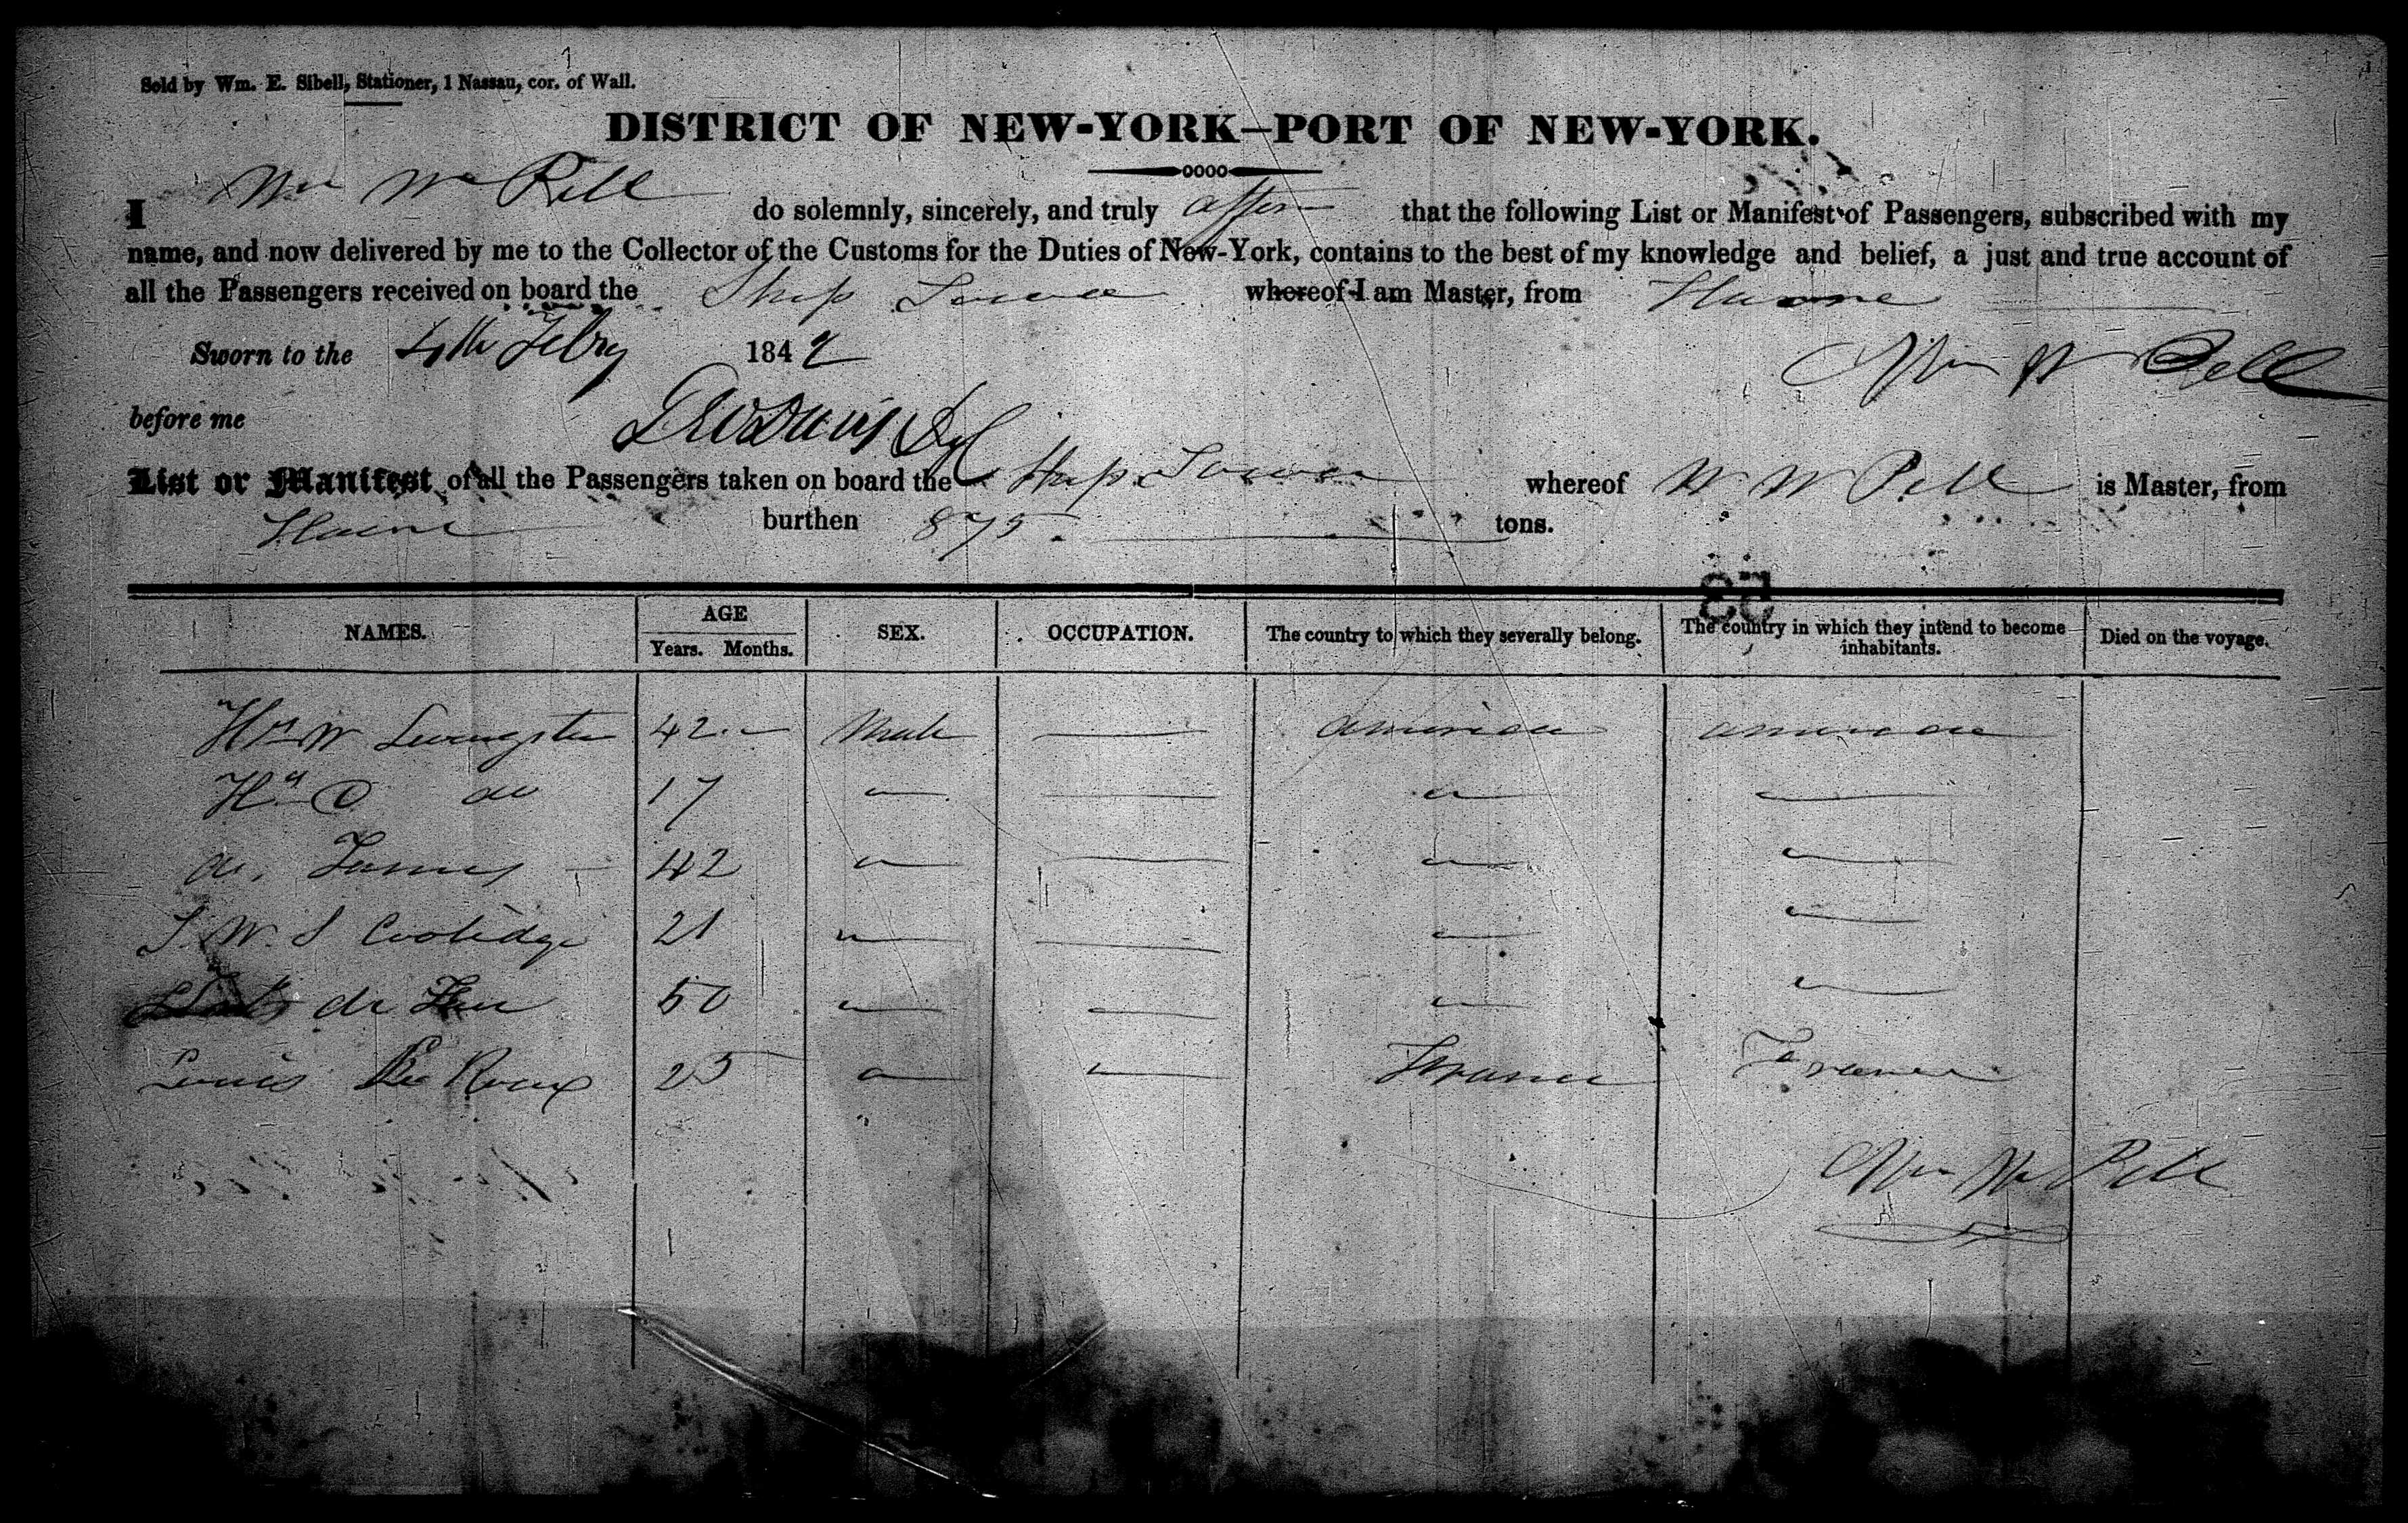 Sold by Wm. E. Sibell, Stationer, 1 Nassau, cor. of Wall.
DISTRICT OF NEW-YORK—PORT OF NEW-YORK.
I Wm W Pell do solemnly, sincerely, and truly affirm that the following List or Manifest of Passengers, subscribed with my
name, and now delivered by me to the Collector of the Customs for the Duties of New-York, contains to the best of my knowledge and belief, a just and true account of
all the Passengers received on board the Ship Iowa whereof I am Master, from Havre
Sworn to the 4th Febry 1842 Wm W Pell
before me
List or Manifest of all the Passengers taken on board the Ship Iowa whereof W W Pell is Master, from
Havre burthen 875 tons.
53
NAMES. AGE Years. Months. SEX. OCCUPATION. The country to which they severally belong. The country in which they intend to become inhabitants. Died on the voyage.
W Livingston 42 Male American American
do 17
do. 42
W. S Coolidge 21
de 50
Louis Le Roux 25 France France
Wm W Pell